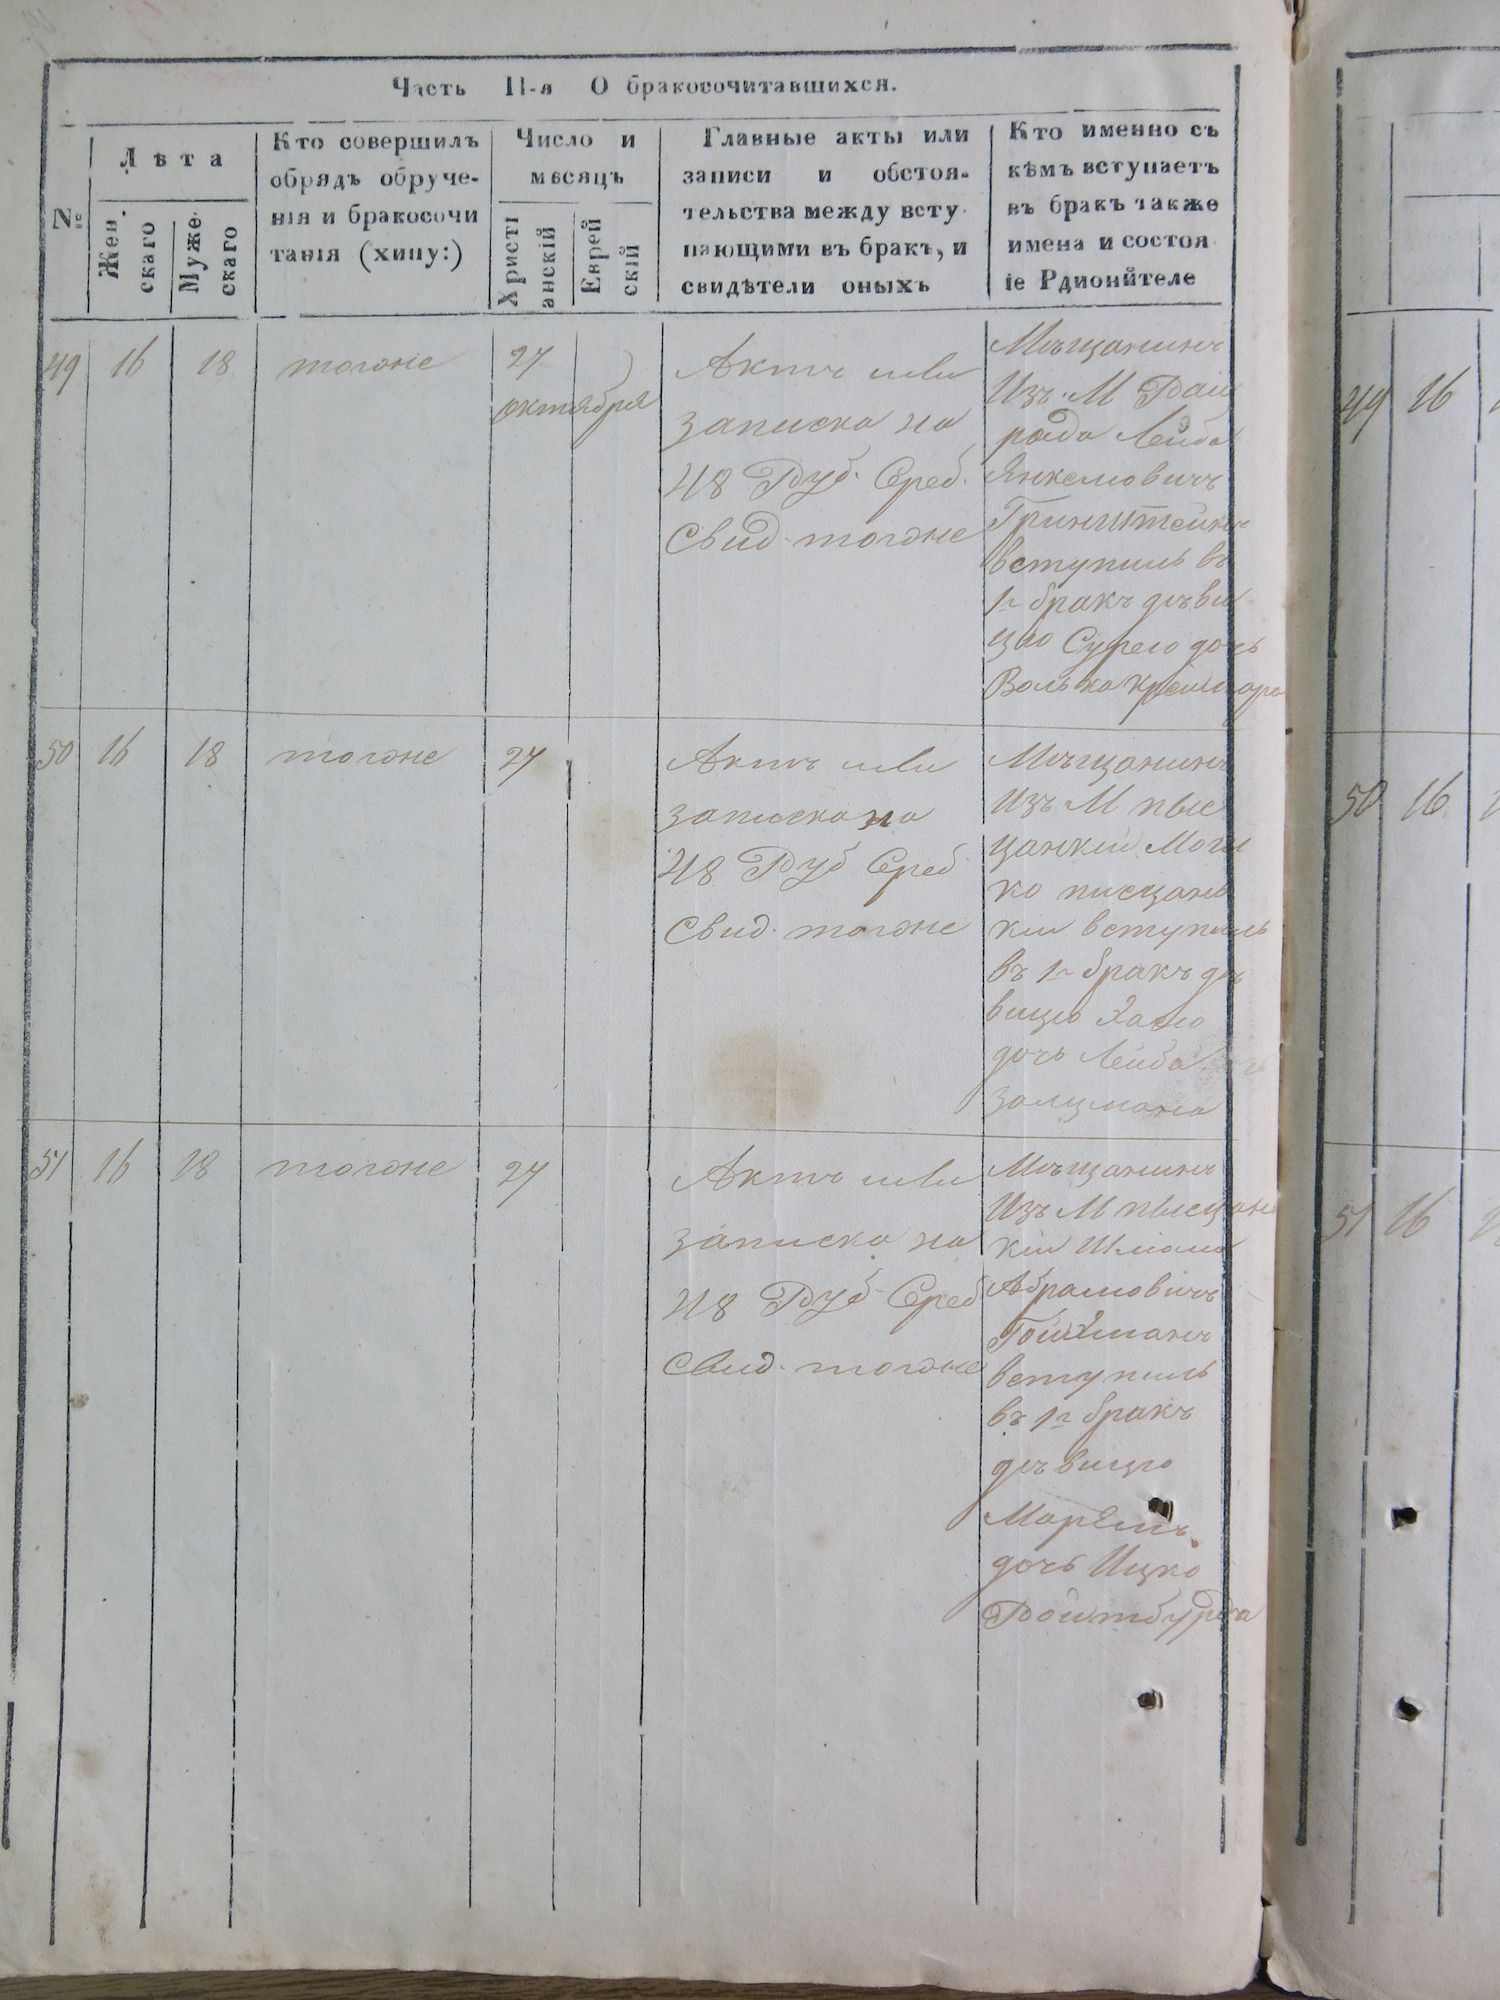 Часть II-я О бракосочитавшихся.
№
Лѣта
Жен.
скаго
Муже
скаго
Кто совершилъ
обрядъ обруче-
нія и бракосочи
танія (хипу:)
Число и
мѣсяцъ
Христі
анскій
Еврей
скій
Главные акты или
записи и обстоя-
тельства между всту
пающими въ бракъ, и
свидѣтели оныхъ
Кто именно съ
кѣмъ вступаетъ
въ бракъ также
имена и состоя
іе Рдионйтеле
49 16 18 тогоже 27
октября
Актъ или
записка на
48 Руб. Сереб.
Свид. тогоже
Мѣщанинъ
Изъ М Раш
рада Лейба
Янкелювичъ
Гринштейнъ
вступилъ въ
1й бракъ дѣви
цію Сурею дочь
Волька
50 16 18 тогоже 27
Актъ или
записка на
48 Руб Сереб
Свид. тогоже
Мѣщанинъ
Изъ М пыс
цанкіи
ко писцань
кіи вступилъ
въ 1й бракъ дѣ
вицію Хаею
дочь Лейба
Залцмана
51 16 18 тогоже 27
Актъ или
записка на
48 Руб Сереб
Свид. тогоже
Мѣщанинъ
Изъ М пысцань
кіи Шлюма
Абрамовичъ
Гойхманъ
вступилъ
въ 1й бракъ
дѣвицію
дочь Ицко
Ройтбурда
49 16
50 16
51 16